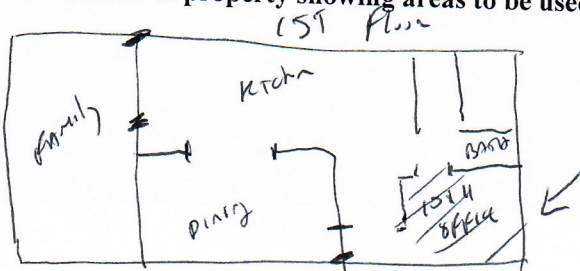 property showing areas to be used
1ST Floor
Kitchn
Family
Bath
Dining
Office